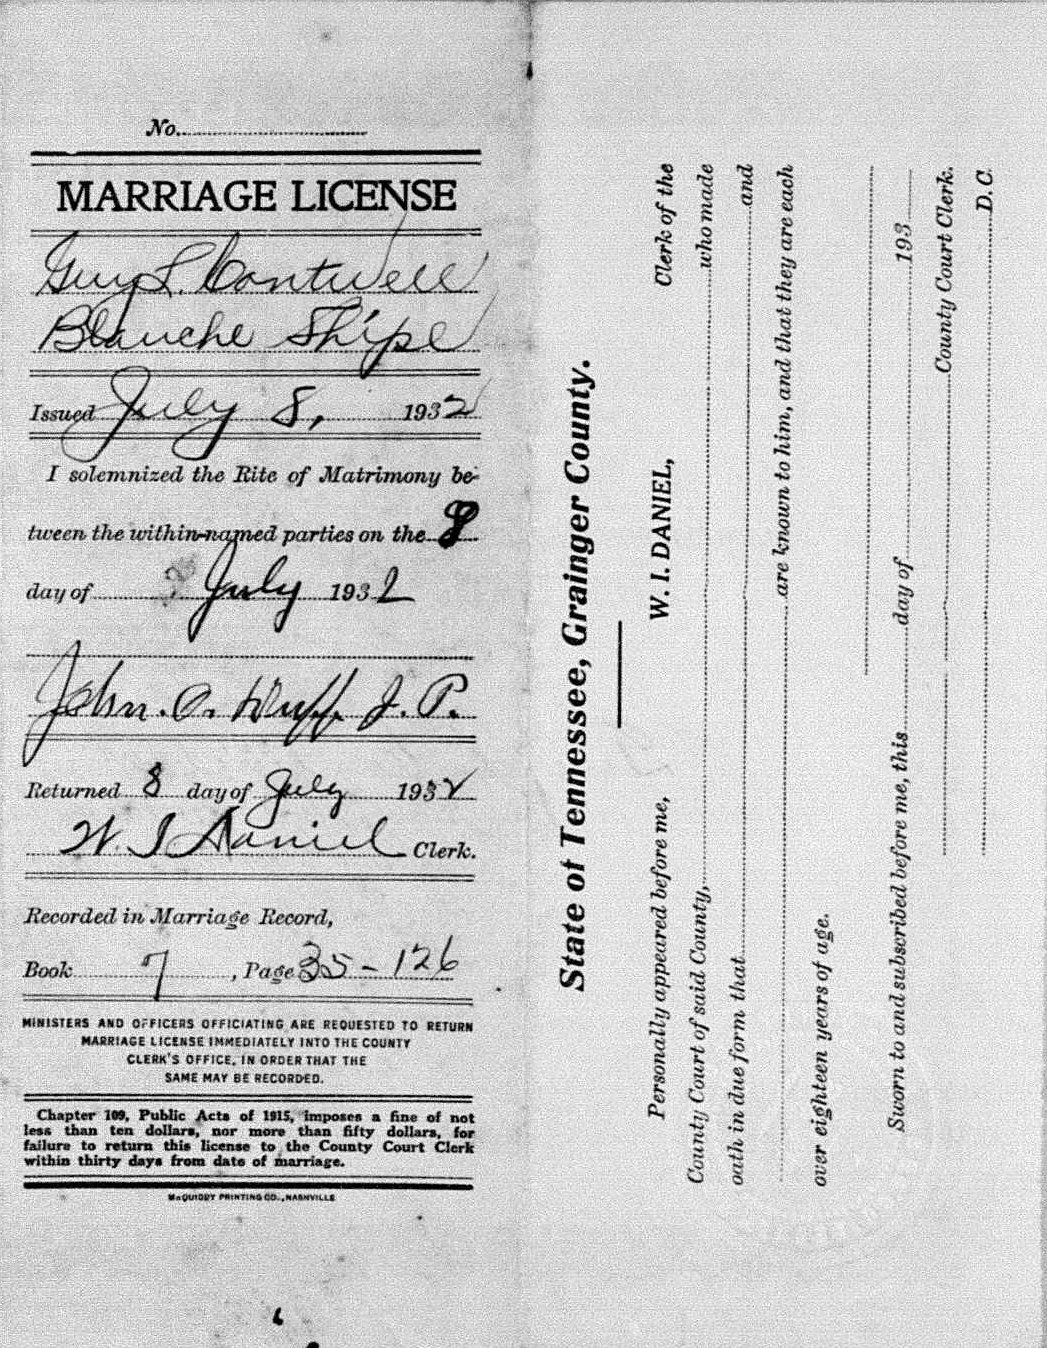 No.
MARRIAGE LICENSE
Guy L. Cantwell
Blanche Shipe
Issued July 8, 1932
I solemnized the Rite of Matrimony be-
tween the within-named parties on the 8
day of July 1932
John. O. Huff. J. P.
Returned 8 day of July 1932
W. I Daniel Clerk.
Recorded in Marriage Record,
Book 7, Page 35-126
MINISTERS AND OFFICERS OFFICIATING ARE REQUESTED TO RETURN
MARRIAGE LICENSE IMMEDIATELY INTO THE COUNTY
CLERK'S OFFICE, IN ORDER THAT THE
SAME MAY BE RECORDED.
Chapter 109, Public Acts of 1915, imposes a fine of not
less than ten dollars, nor more than fifty dollars, for
failure to return this license to the County Court Clerk
within thirty days from date of marriage.
McQUIDDY PRINTING CO., NASHVILLE
State of Tennessee, Grainger County.
Personally appeared before me, W. I. DANIEL, Clerk of the
County Court of said County, who made
oath in due form that and
are known to him, and that they are each
over eighteen years of age.
Sworn to and subscribed before me, this day of 193
County Court Clerk.
D. C.